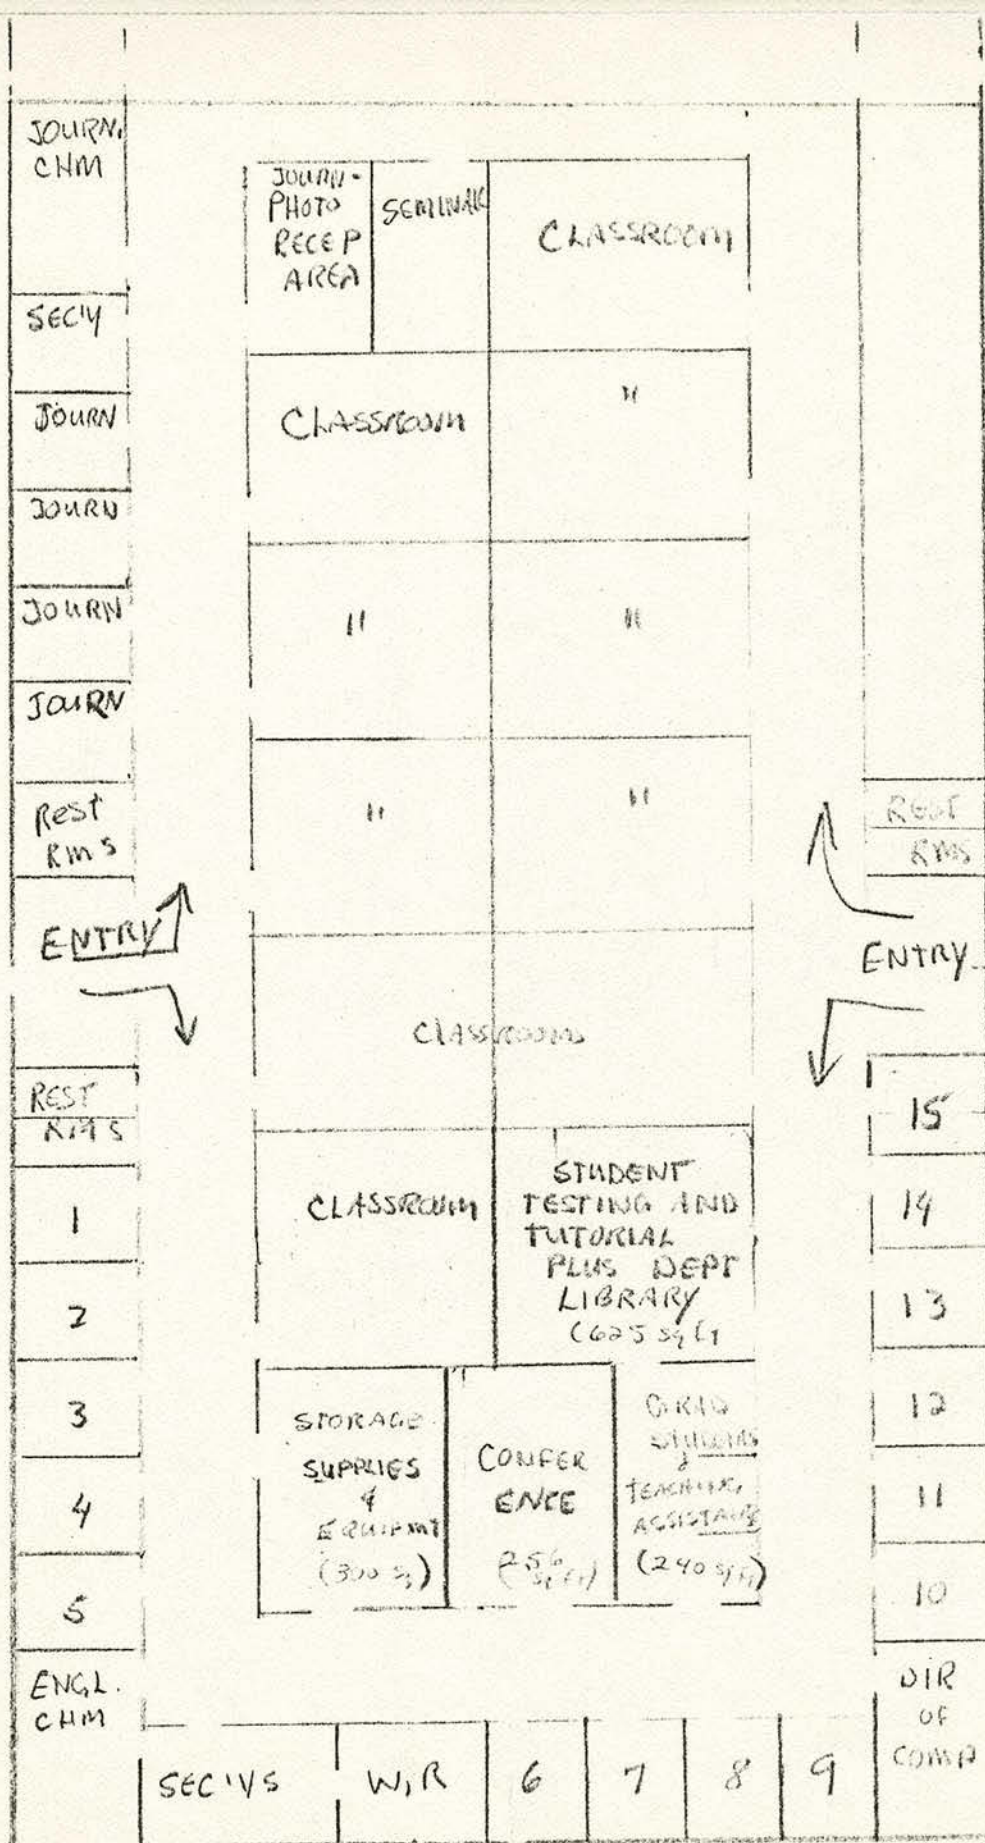 JOURN.
CHM
SEC'Y
JOURN
JOURN
JOURN
JOURN
REST
RMS
ENTRY
REST
RMS
1
2
3
4
5
ENGL.
CHM
JOURN-
PHOTO
RECEP
AREA
SEMINAR
CLASSROOM
CLASSROOM
"
"
"
"
"
CLASSROOMS
CLASSROOM
STUDENT
TESTING AND
TUTORIAL
PLUS DEPT
LIBRARY
(625 sq ft
STORAGE
SUPPLIES
&
EQUIPMT
(300 sq)
CONFER
ENCE
(256
sq ft)
GRAD
&
TEACHING
ASSISTANTS
(240 sq ft)
REST
RMS
ENTRY
15
14
13
12
11
10
DIR
OF
COMP
SEC'YS
W,R
6
7
8
9